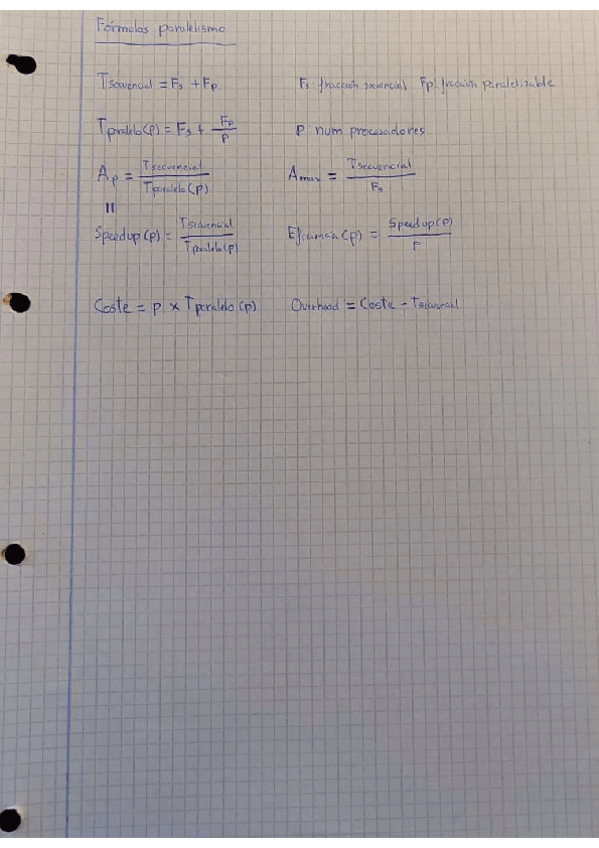 Fórmulas paralelismo
Tsecuencial = Fs + Fp Fs: fracción secuencial Fp: fracción paralelizable
Tparalelo(p) = Fs + Fp/P P: num procesadores
Ap = Tsecuencial/Tparalelo(p) Amax = Tsecuencial/Fs
=
Speedup(p) = Tsecuencial/Tparalelo(p) Eficiencia(p) = Speedup(p)/P
Coste = p × Tparalelo(p) Overhead = Coste - Tsecuencial